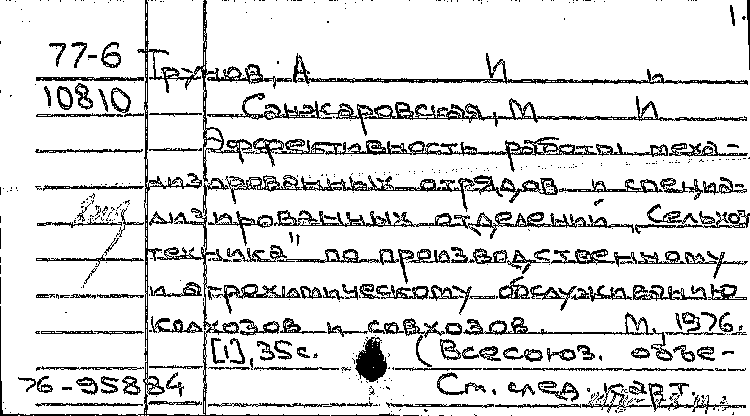 1.
77-6 Трунов, А И и
10810 Санжаровская, М И
Эффективность работы меха-
низированных отрядов и специа-
лизированных отделений „Сельхоз
техника" по производственному
и агрохимическому обслуживанию
колхозов и совхозов. М., 1976.
[1], 35с. (Всесоюз. объе-
76-95884 См. след. карт.